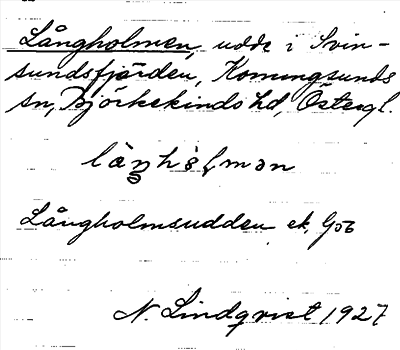 Långholmen, udde i Svin-
sundsfjärden, Konungsunds
sn, Björkekinds hd, Östergl.
Långholmsudden ek. G
N. Lindqvist 1927